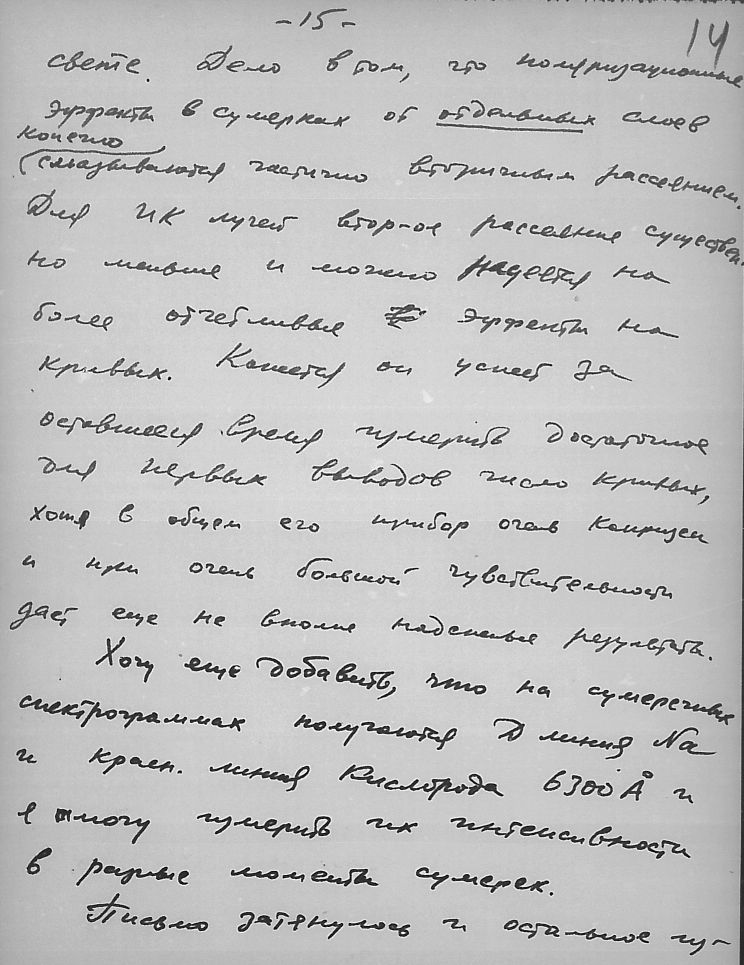 -15-
14
свете. Дело в том, что поляризационные
эффекты в сумерках от отдельных слоев
конечно
смазываются частично вторичным рассеянием.
Для ИК лучей втор-ое рассеяние существен-
но меньше и можно надеятся на
более отчетливые эффекты на
кривых. Кажется он успеет за
оставшееся время измерить достаточное
для первых выводов число кривых,
хотя в общем его прибор очень капризен
и при очень большой чувствительности
дает еще не вполне надежные результаты.
Хочу еще добавить, что на сумеречных
спектрограммах получаются D линия Na
и красн. линия Кислорода 6300 Å и
я смогу измерить их интенсивности
в разные моменты сумерек.
Письмо затянулось и остальное из-